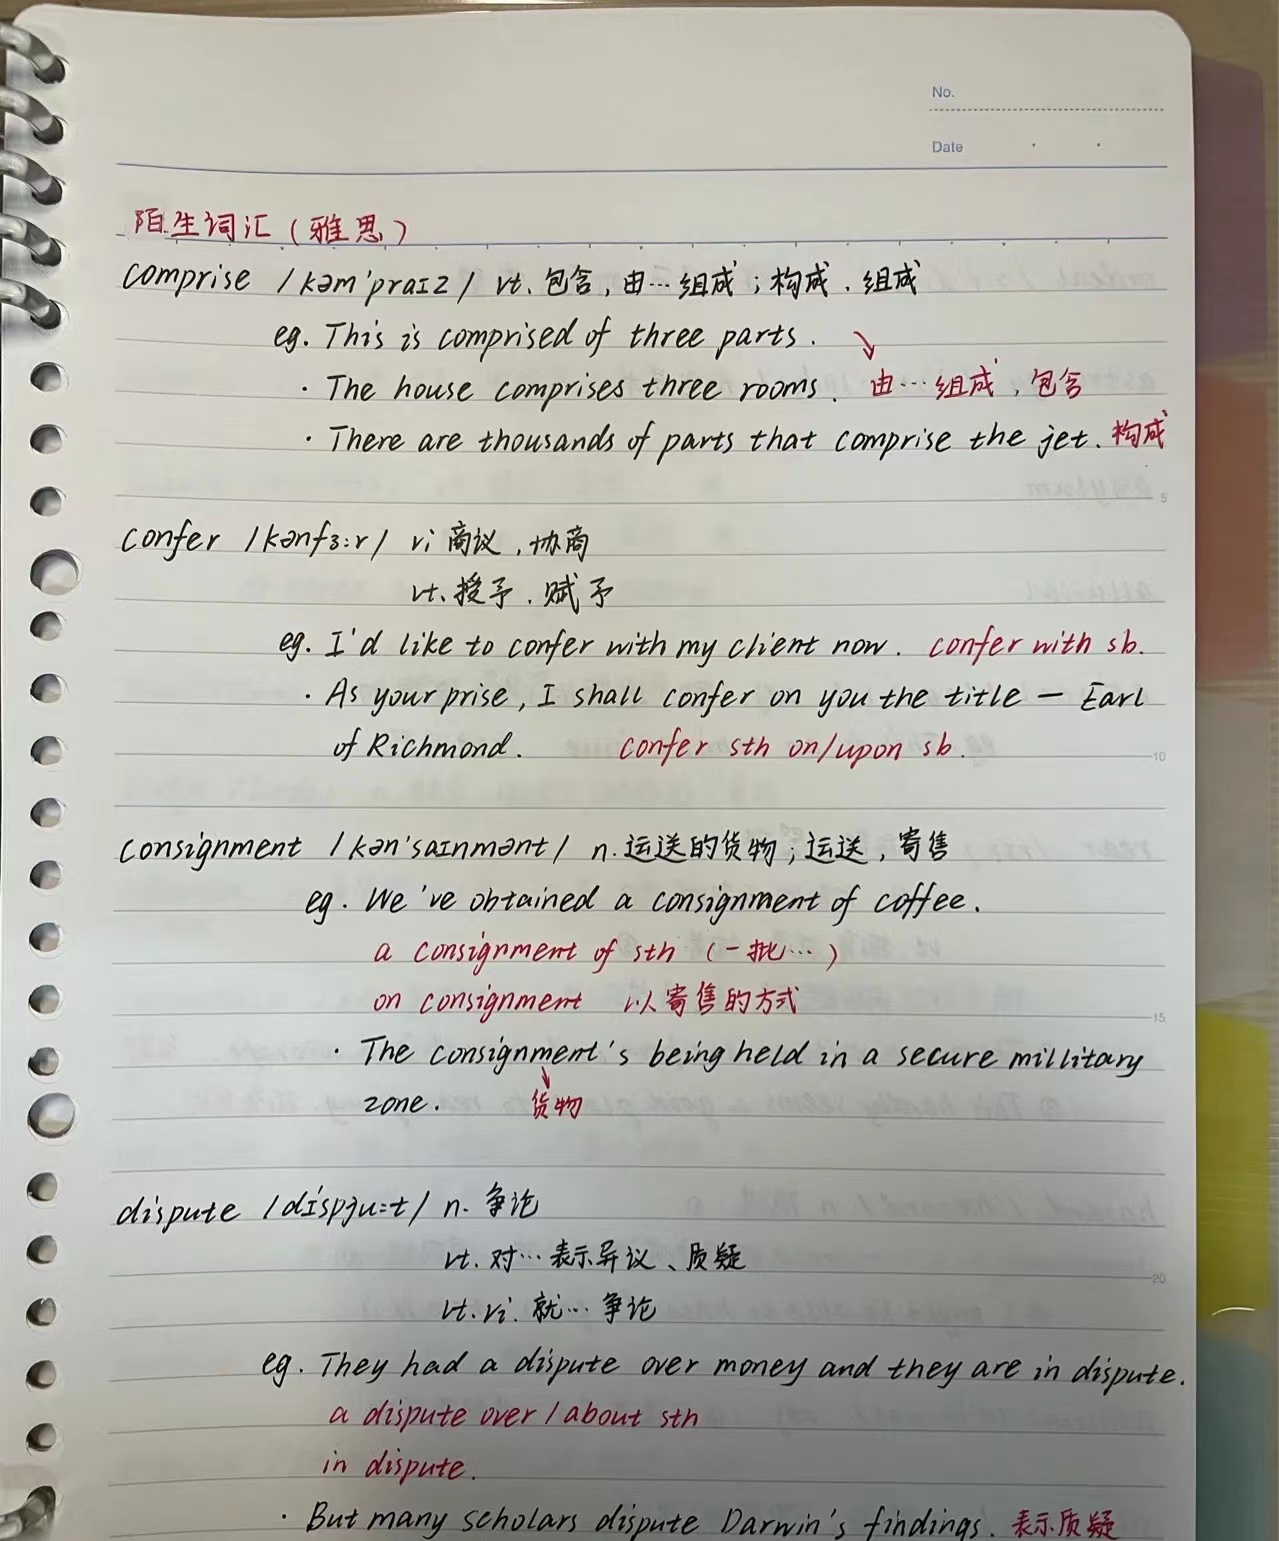 No.
Date
陌生词汇（雅思）
comprise /kəm'praɪz/ vt. 包含，由…组成；构成．组成
eg. This is comprised of three parts.
· The house comprises three rooms. 由…组成，包含
· There are thousands of parts that comprise the jet. 构成
5
confer /kənfɜ:r/ vi 商议，协商
vt. 授予．赋予
eg. I'd like to confer with my client now. confer with sb.
· As your prise, I shall confer on you the title — Earl
of Richmond. confer sth on/upon sb.
10
consignment /kən'saɪnmənt/ n. 运送的货物；运送，寄售
eg. We've obtained a consignment of coffee.
a consignment of sth （一批…）
on consignment 以寄售的方式
15
· The consignment's being held in a secure millitary
zone. 货物
dispute /dɪ'spju:t/ n. 争论
vt. 对…表示异议、质疑
20
vt. vi. 就…争论
eg. They had a dispute over money and they are in dispute.
a dispute over / about sth
in dispute.
· But many scholars dispute Darwin's findings. 表示质疑